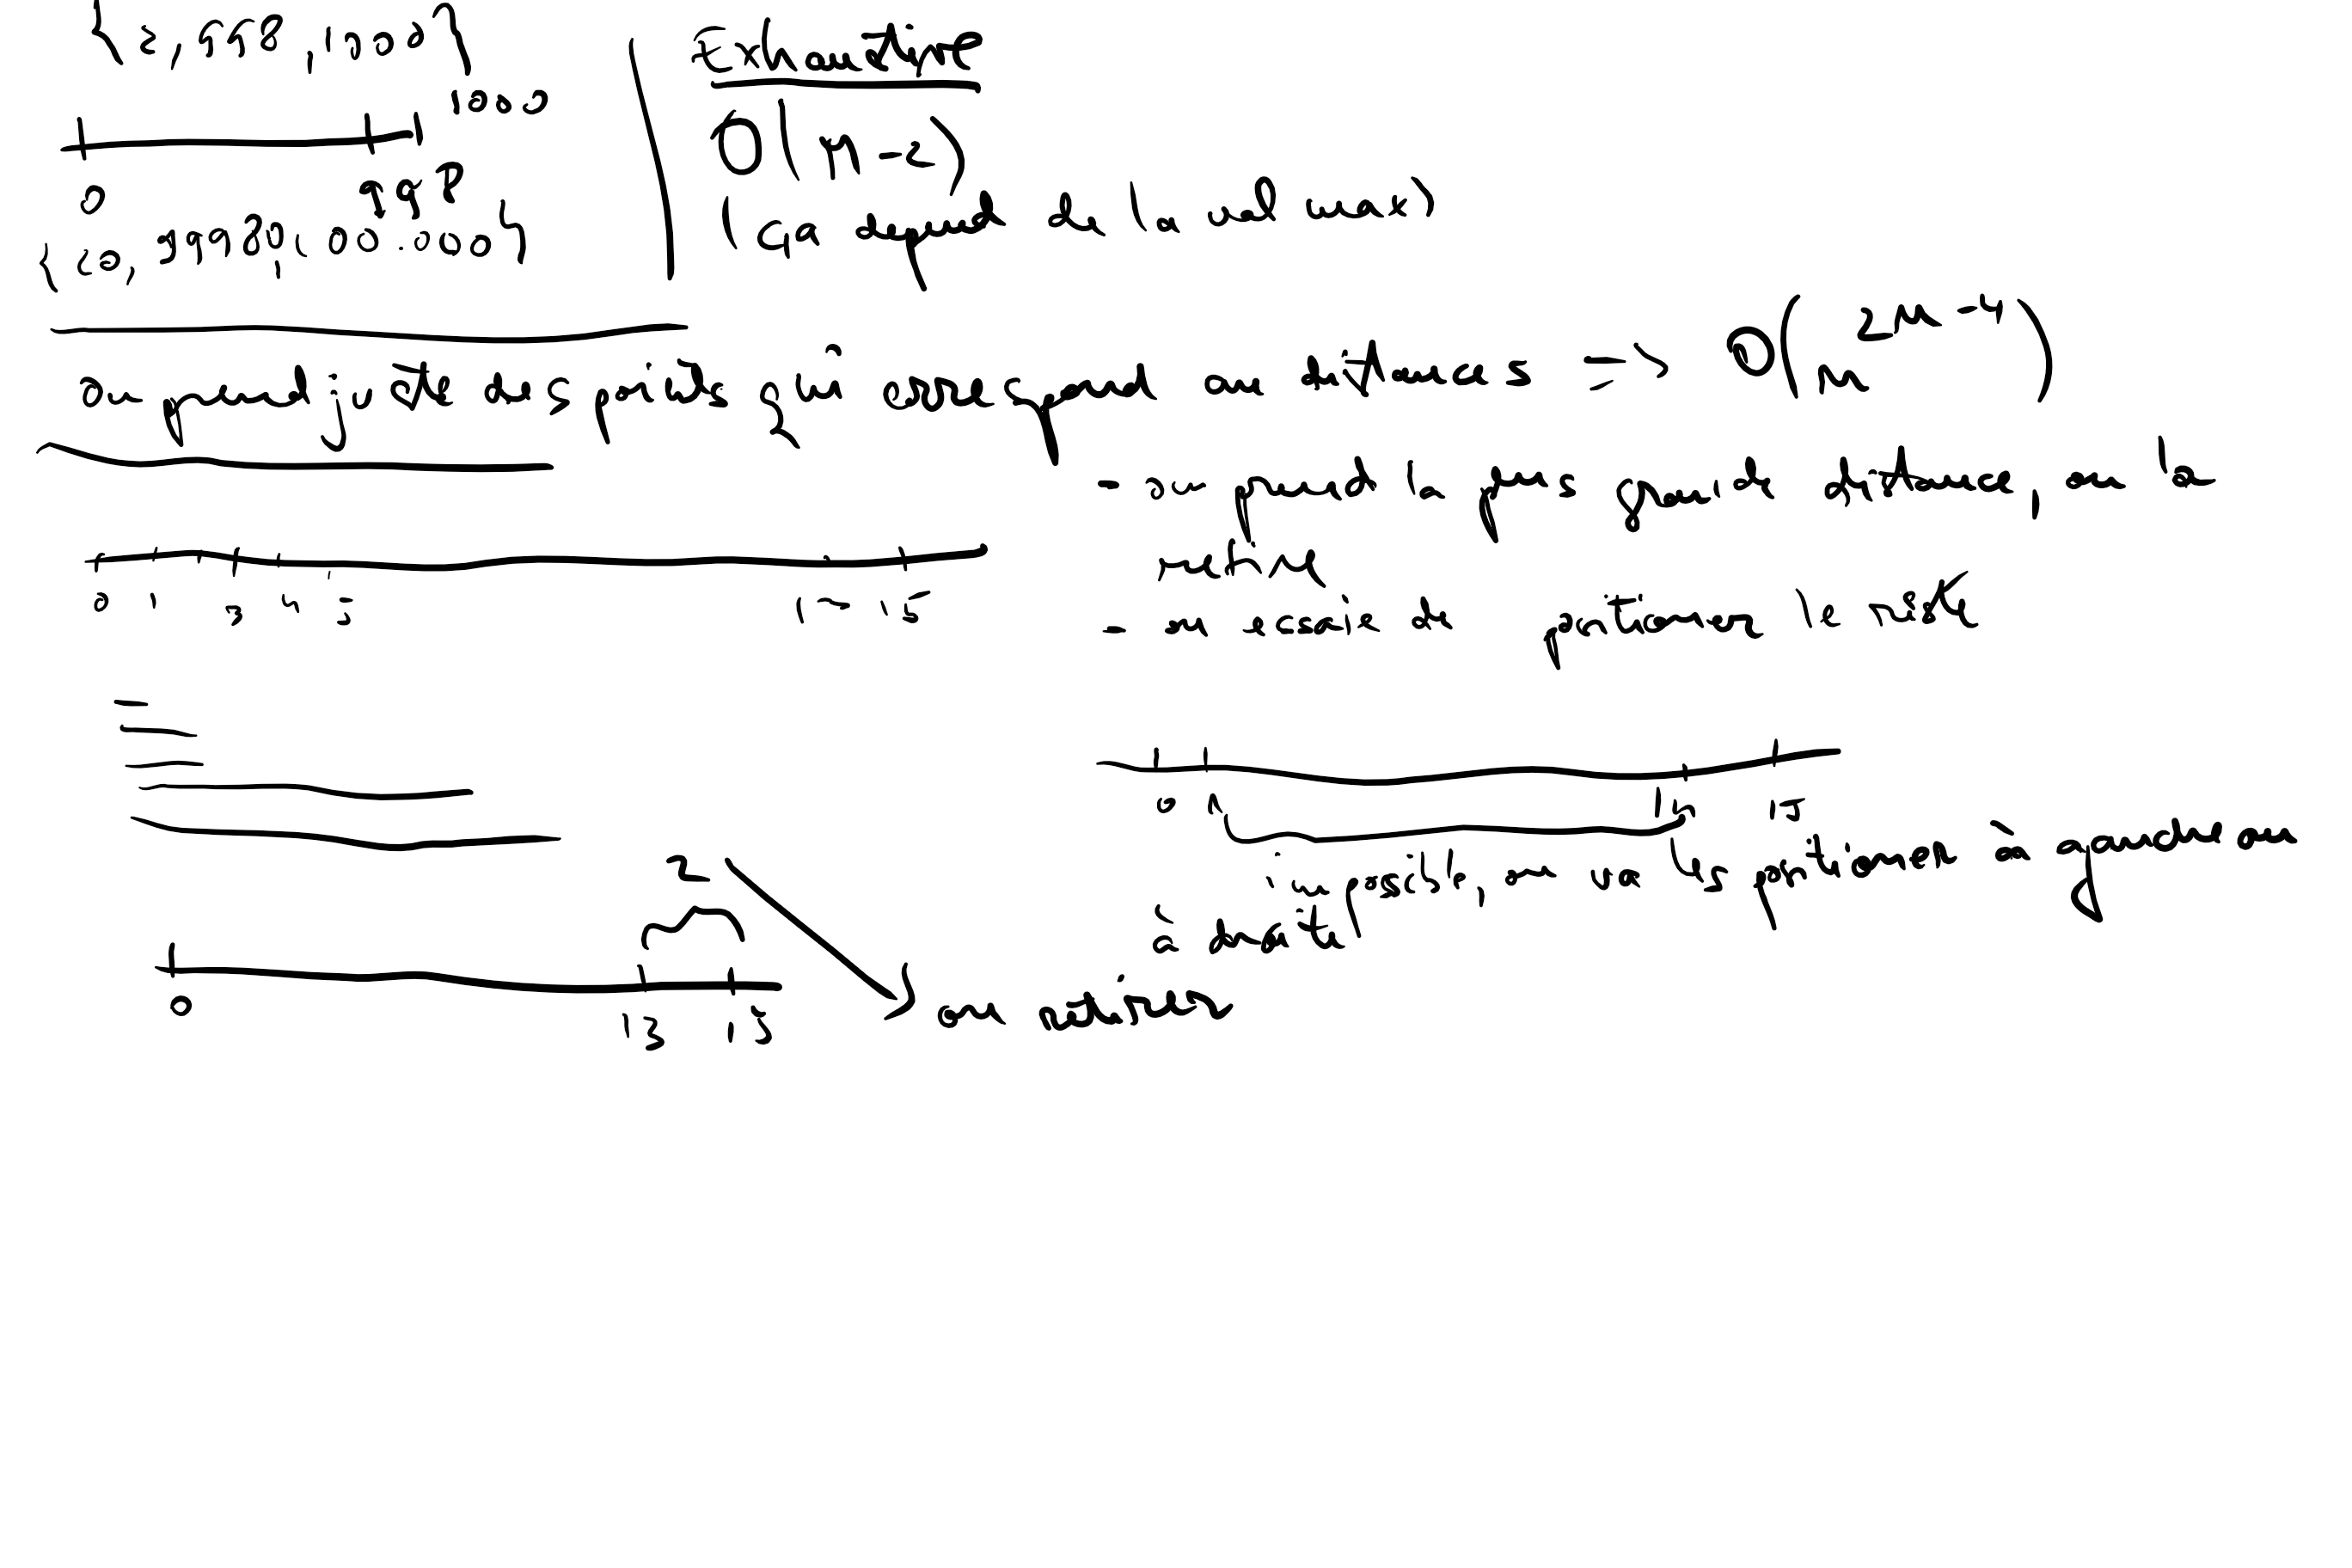 {2, 998, 1000}
1000
0 998
{20, 9980, 1 00.000}
Exhaustive
O(M-2)
(ça dépend de la val max)
On prend juste des points qui correspond aux distances => O(n^{2n-4})
- on prend la plus grande distance, on la
retire
- on essaie de positionner le reste
0 1 3 4 5 15
0 1 15
impossible, on va les positionner à gauche ou
à droite
2
0 13 15
on retire les